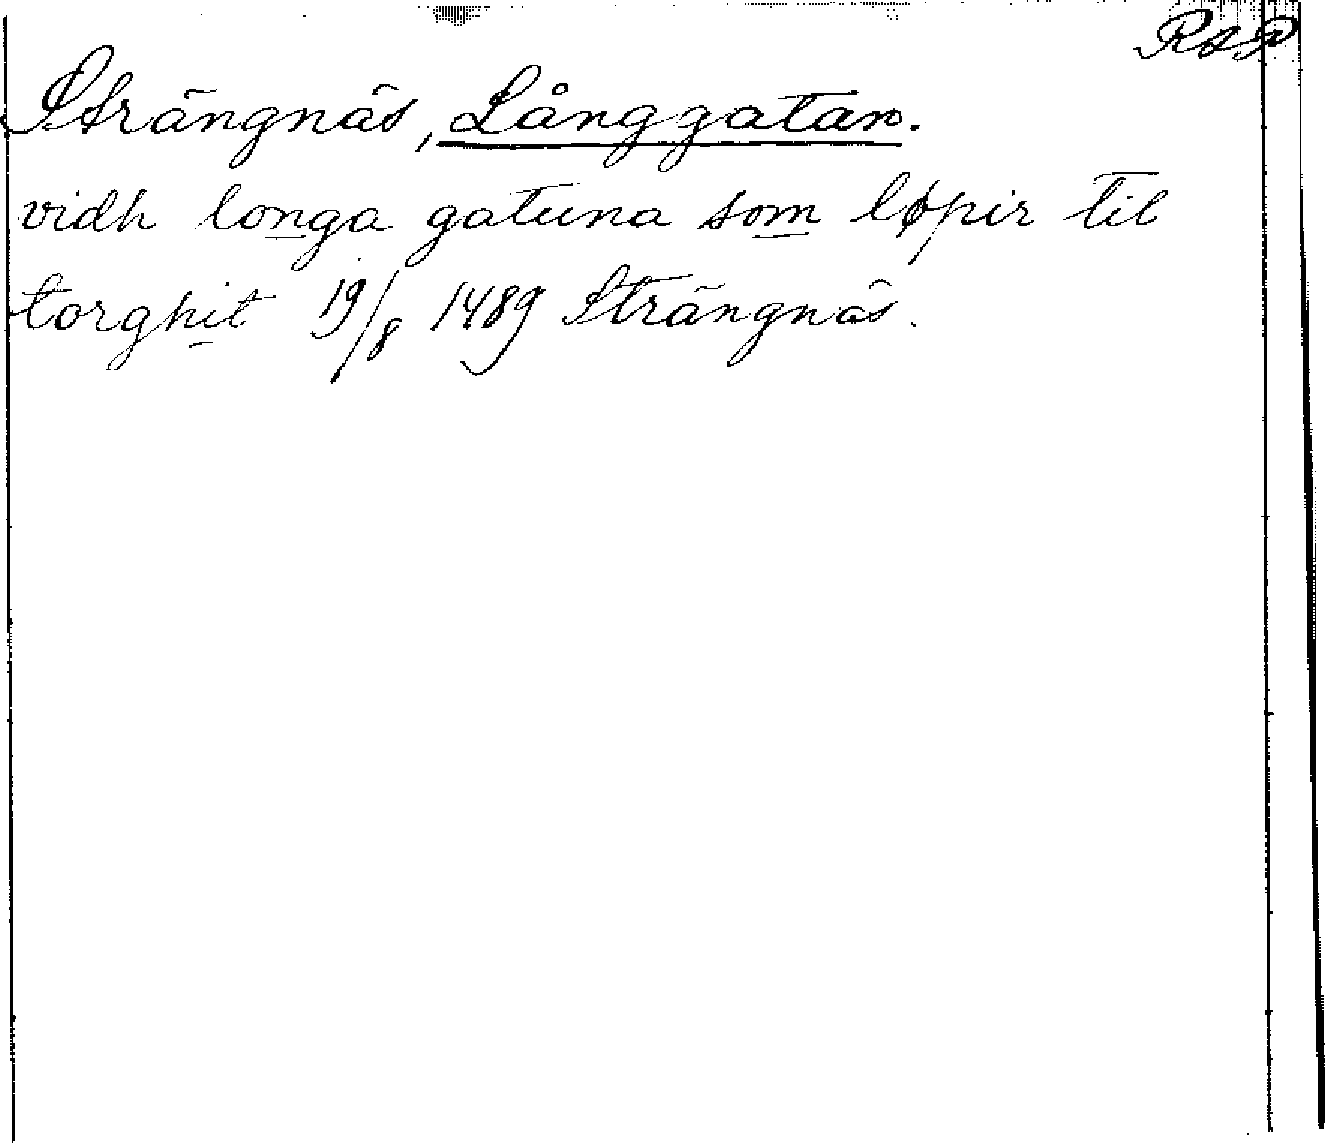 RAP
Strängnäs, Långgatan.
vidh longa gatuna som løpir til
torghit 19/8 1489 Strängnäs.